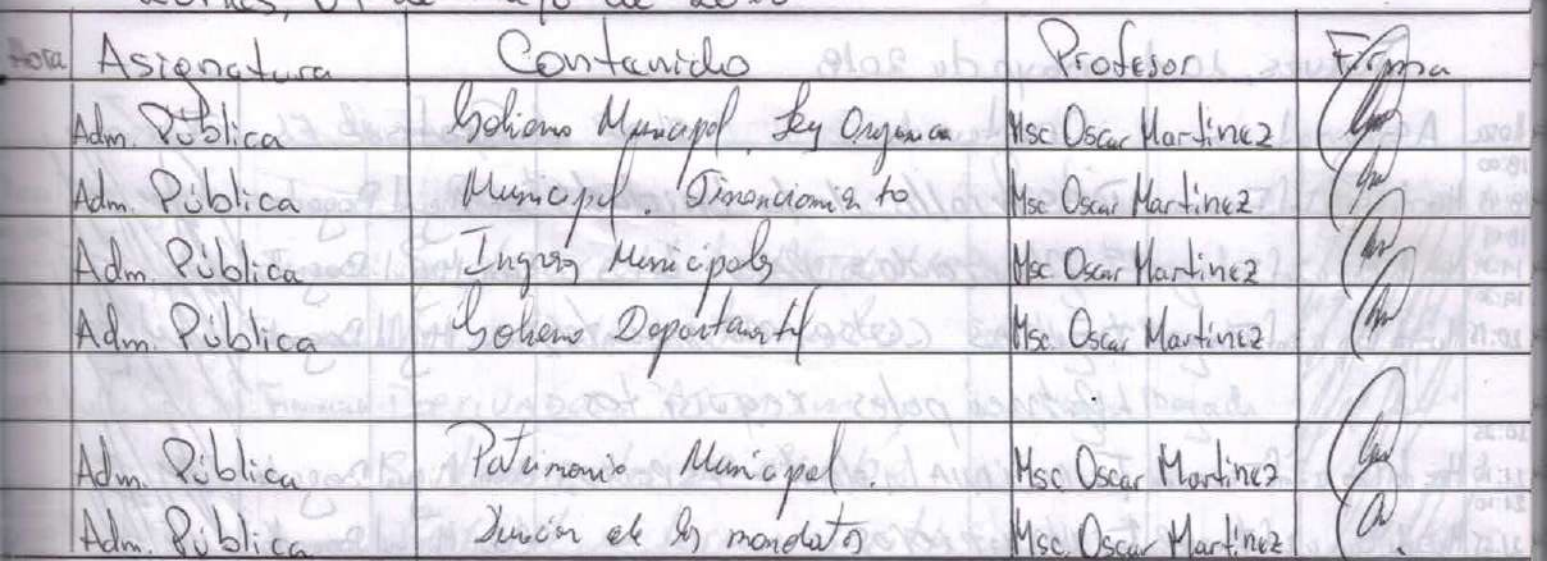 de 2018
Hora Asignatura Contenido Profesor Firma
Adm. Pública Gobierno Municipal. Ley Orgánica Msc Oscar Martinez
Adm. Pública Municipal. Financiamiento Msc Oscar Martinez
Adm. Pública Ingresos Municipales Msc Oscar Martinez
Adm. Pública Gobierno Departamental Msc. Oscar Martinez
Adm. Pública Patrimonio Municipal. Msc Oscar Martinez
Adm. Pública de los mandatos Msc. Oscar Martinez